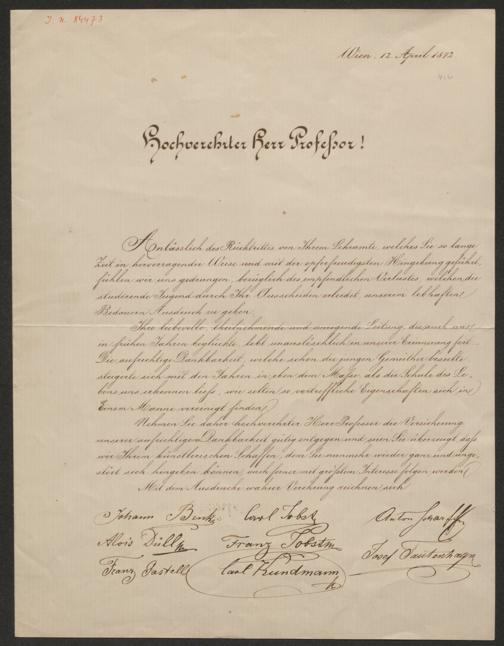 J. N. 84473
Wien, 12. April 1892
Hochverehrter Herr Professor!
Anlässlich des Rücktrittes von Ihrem Lehramte, welches Sie so lange
Zeit in hervorragender Weise und mit der opferfreudigsten Hingebung geführt,
fühlen wir uns gedrungen, bezüglich des empfindlichen Verlustes, welchen die
studierende Jugend durch Ihr Ausscheiden erleidet, unserem lebhaften
Bedauern Ausdruck zu geben.
Ihre liebevolle, theilnehmende und anregende Leitung, die auch uns
in frühen Jahren beglückte, lebt unauslöschlich in unserer Erinnerung fort.
Die aufrichtige Dankbarkeit, welche schon die jungen Gemüther beseelte
steigerte sich mit den Jahren in eben dem Maße, als die Schule des Le-
bens uns erkennen ließ, wie selten so vortreffliche Eigenschaften sich in
Einem Manne vereinigt finden.
Nehmen Sie daher hochverehrter Herr Professor die Versicherung
unserer aufrichtigen Dankbarkeit gütig entgegen und seien Sie überzeugt daß
wir Ihrem künstlerischen Schaffen, dem Sie nunmehr wieder ganz und unge-
stört sich hingeben können, auch ferner mit größtem Interesse folgen werden.
Mit dem Ausdrucke wahrer Verehrung zeichnen sich
Johann Benk Carl Jobst Anton Scharff
Alois Düll Franz Jobst Josef Tautenhayn
Franz Pastell Carl Kundmann